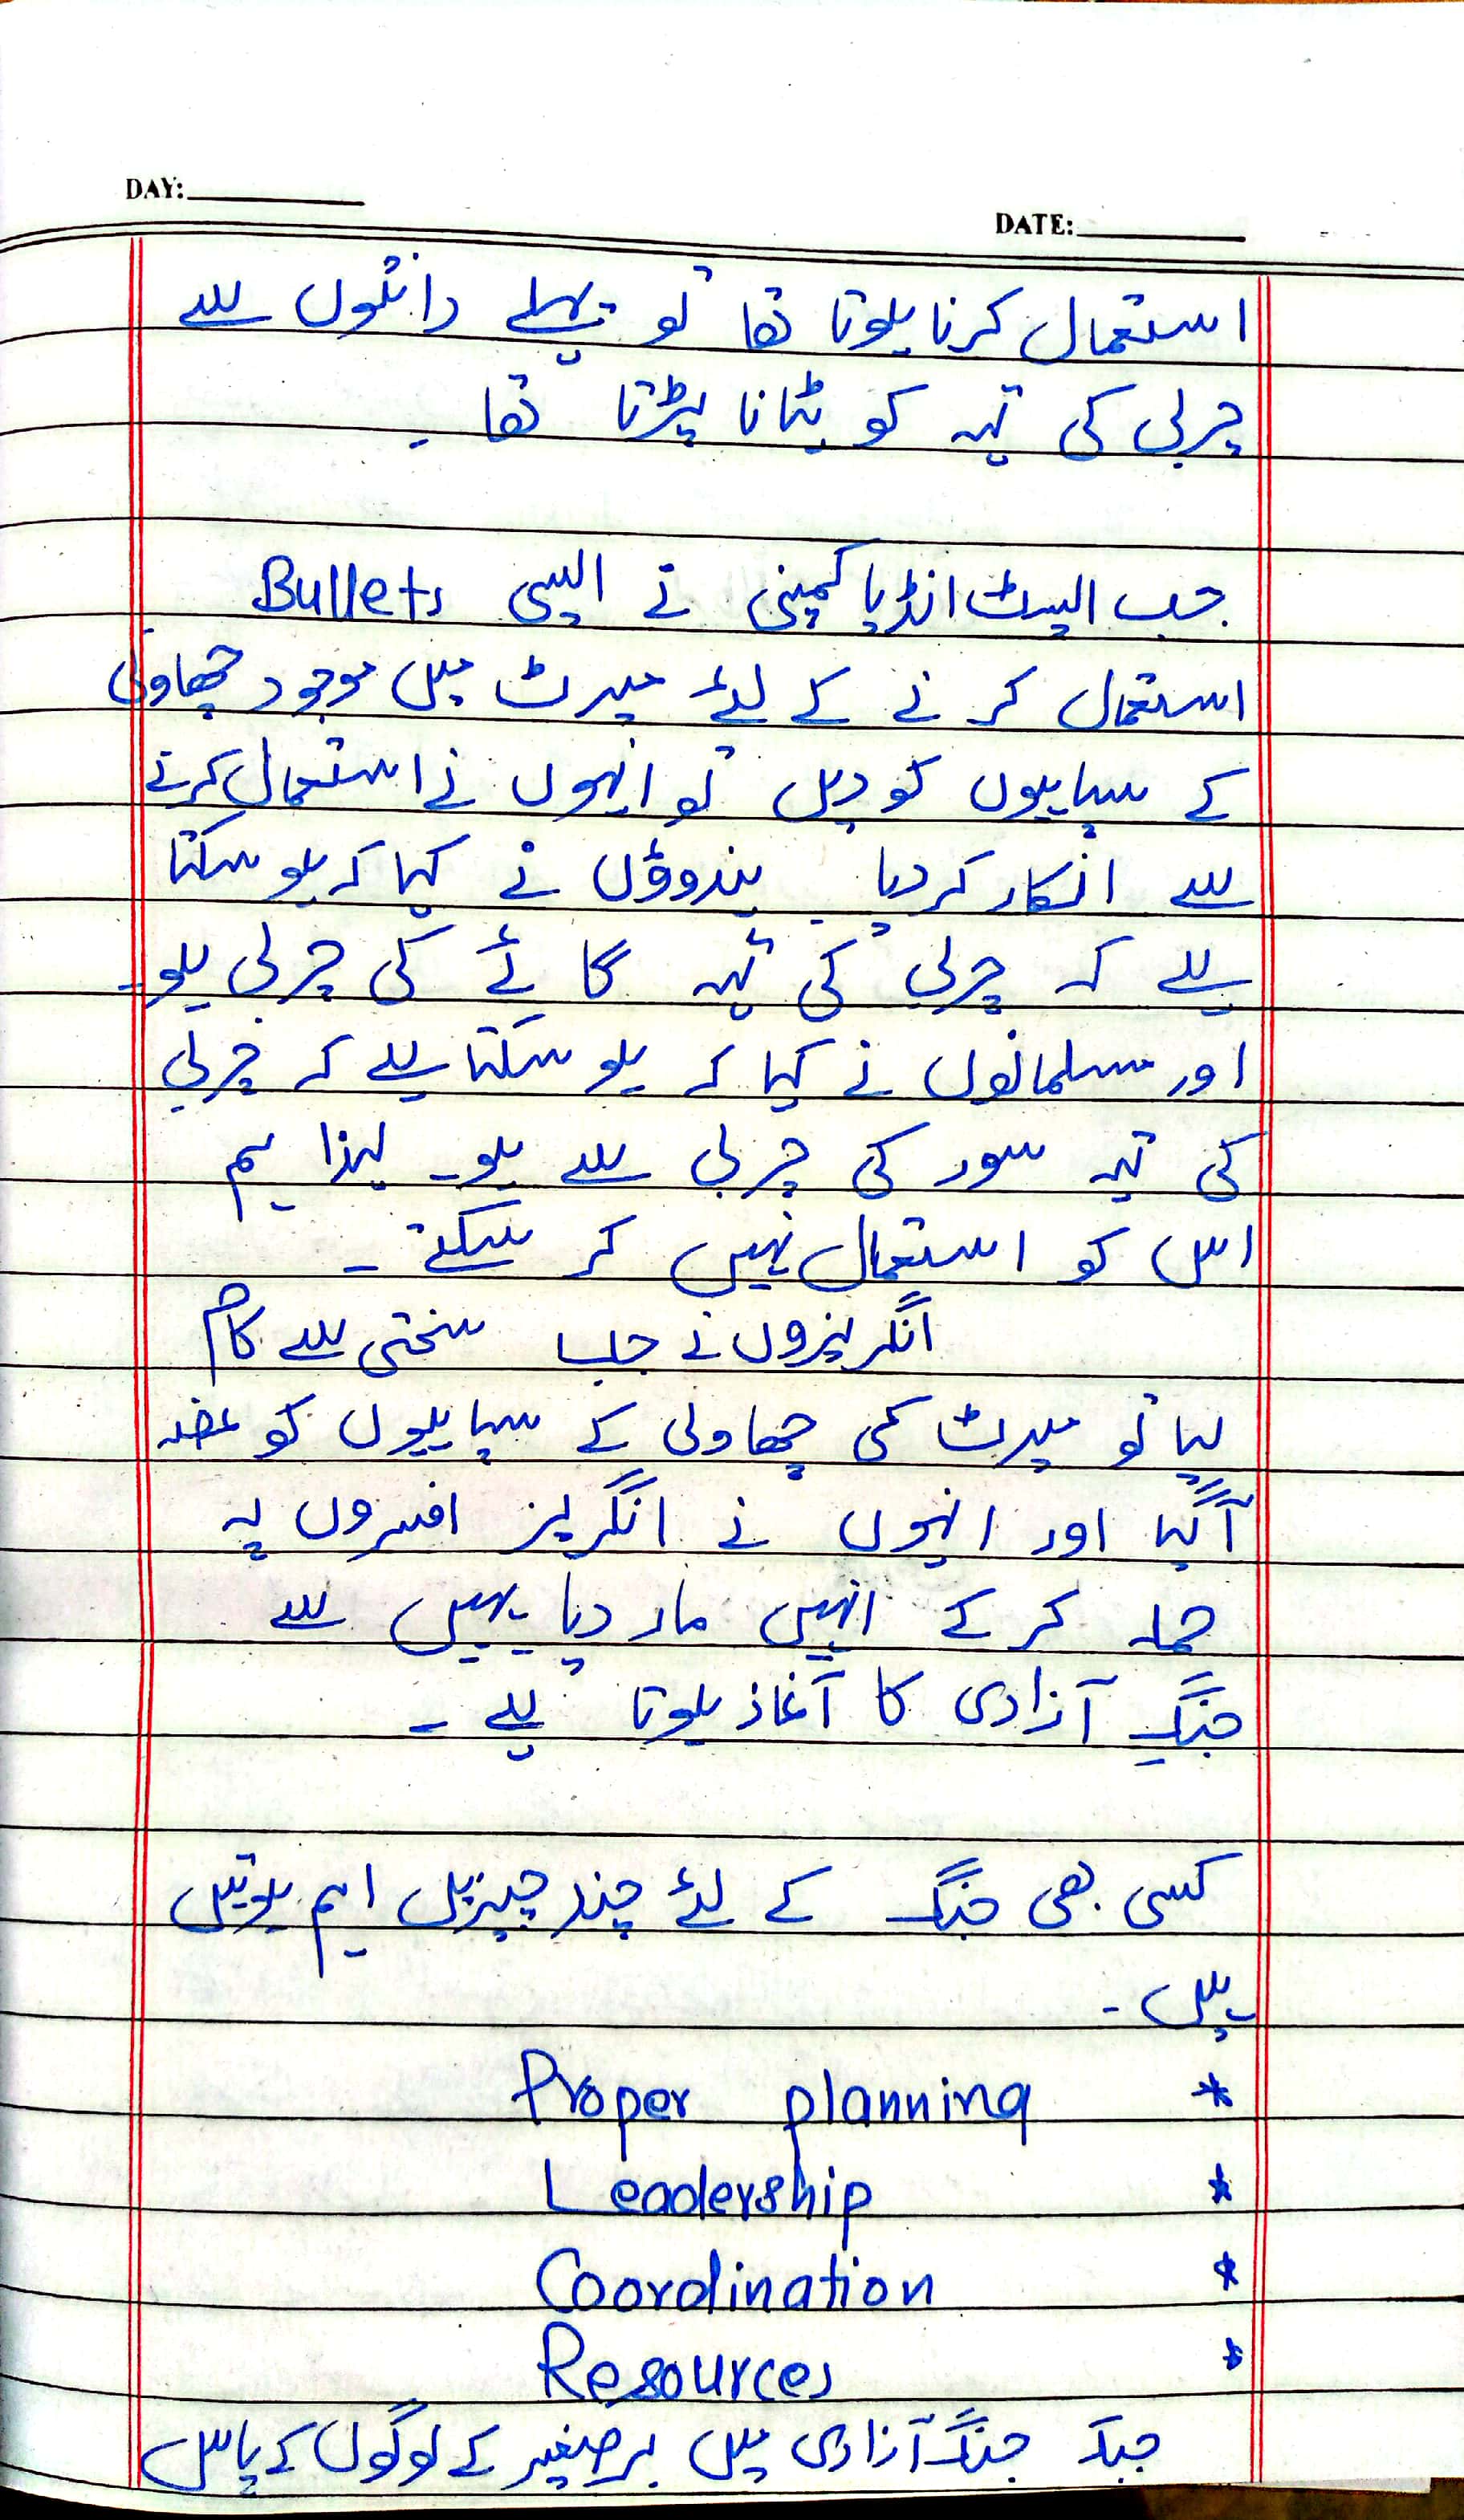 DAY:
DATE:
استعمال کرنا ہوتا تھا تو پہلے دانتوں سے
چربی کی تہہ کو ہٹانا پڑتا تھا ۔
جب ایسٹ انڈیا کمپنی نے ایسی Bullets
استعمال کرنے کے لئے میرٹ میں موجود چھاونی
کے سپاہیوں کو دیں تو انہوں نے استعمال کرنے
سے انکار کر دیا ۔ ہندوؤں نے کہا کہ ہو سکتا
ہے کہ چربی کی تہہ گائے کی چربی ہو۔
اور مسلمانوں نے کہا کہ ہو سکتا ہے کہ چربی
کی تہہ سور کی چربی سے ہو۔ لہذا ہم
اس کو استعمال نہیں کر سکتے ۔
انگریزوں نے جب سختی سے کام
لیا تو میرٹ کی چھاونی کے سپاہیوں کو غصہ
آگیا اور انہوں نے انگریز افسروں پہ
حملہ کر کے انہیں مار دیا یہیں سے
جنگِ آزادی کا آغاز ہوتا ہے ۔
کسی بھی جنگ کے لئے چند چیزیں اہم ہوتیں
ہیں ۔
* Proper planning
* Leadership
* Coordination
* Resources
جبکہ جنگ آزادی میں برصغیر کے لوگوں کے پاس